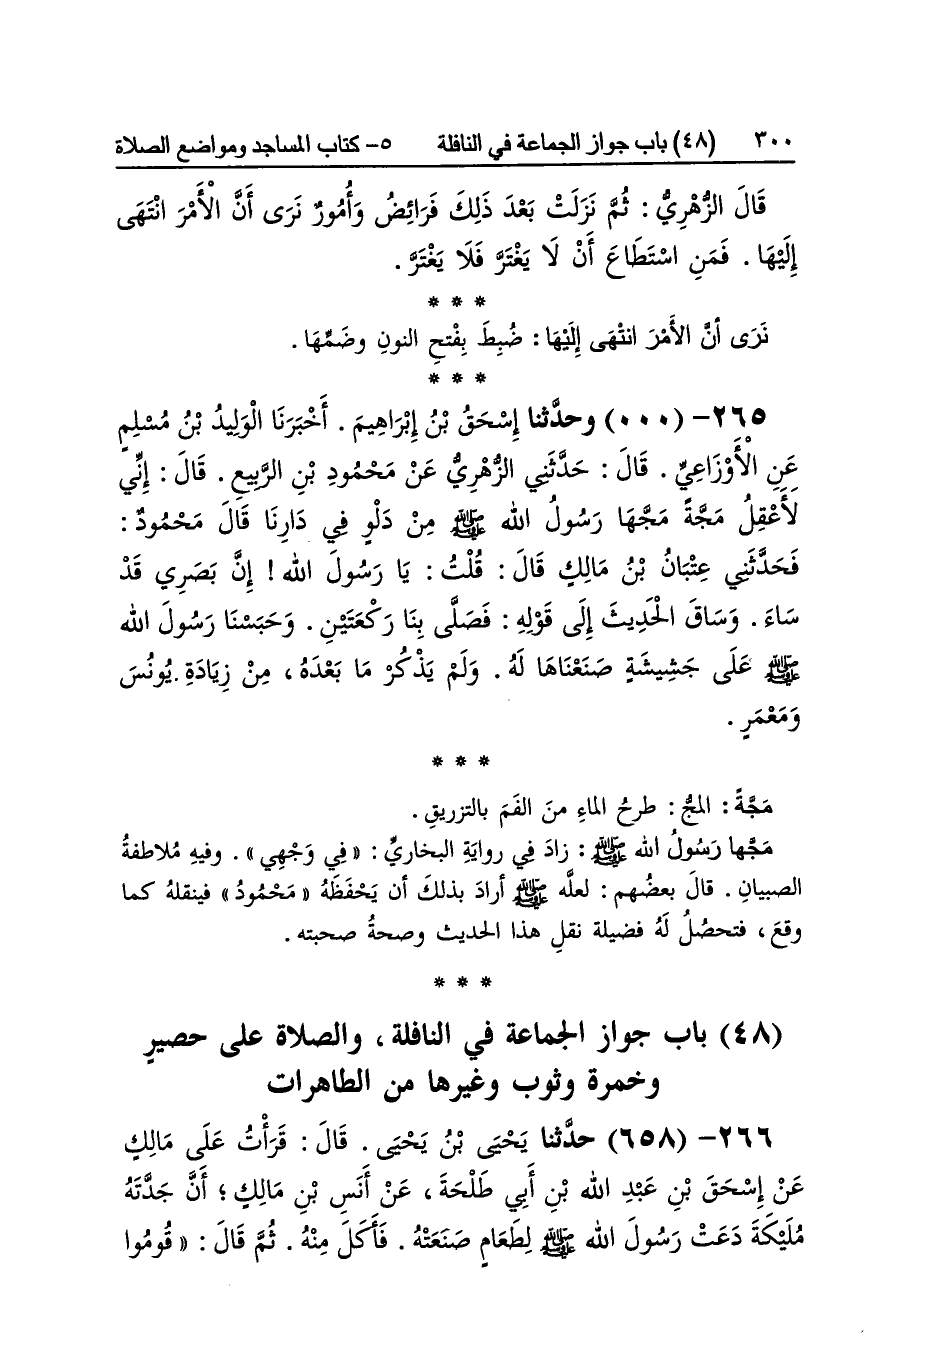 ٣٠٠ (٤٨) باب جواز الجماعة في النافلة ٥- كتاب المساجد ومواضع الصلاة
قَالَ الزُّهْرِيُّ : ثُمَّ نَزَلَتْ بَعْدَ ذَلِكَ فَرَائِضُ وَأُمُورٌ نَرَى أَنَّ الْأَمْرَ انْتَهَى
إِلَيْهَا . فَمَنِ اسْتَطَاعَ أَنْ لَا يَغْتَرَّ فَلَا يَغْتَرَّ .
* * *
نَرَى أنَّ الأَمْرَ انتْهَى إِلَيْهَا : ضُبِطَ بِفْتحِ النونِ وضَمِّهَا .
* * *
٢٦٥- (٠٠٠) وحدَّثنا إِسْحَقُ بْنُ إِبْرَاهِيمَ . أَخْبَرَنَا الْوَلِيدُ بْنُ مُسْلِمٍ
عَنِ الْأَوْزَاعِيِّ . قَالَ : حَدَّثَنِي الزُّهْرِيُّ عَنْ مَحْمُودِ بْنِ الرَّبِيعِ . قَالَ : إِنِّي
لَأَعْقِلُ مَجَّةً مَجَّهَا رَسُولُ الله ﷺ مِنْ دَلْوٍ فِي دَارِنَا قَالَ مَحْمُودٌ :
فَحَدَّثَنِي عِتْبَانُ بْنُ مَالِكٍ قَالَ : قُلْتُ : يَا رَسُولَ الله ! إِنَّ بَصَرِي قَدْ
سَاءَ . وَسَاقَ الْحَدِيثَ إِلَى قَوْلِهِ : فَصَلَّى بِنَا رَكْعَتَيْنِ . وَحَبَسْنَا رَسُولَ الله
ﷺ عَلَى جَشِيشَةٍ صَنَعْنَاهَا لَهُ . وَلَمْ يَذْكُرْ مَا بَعْدَهُ ، مِنْ زِيَادَةِ يُونُسَ
وَمَعْمَرٍ .
* * *
مَجَّةً : المجُّ : طرحُ الماءِ منَ الفَمَ بالتزريقِ .
مَجَّها رَسُولُ الله ﷺ : زادَ فِي روايَةِ البخاريِّ : « فِي وَجْهِي » . وفيهِ مُلاطفةُ
الصبيانِ . قالَ بعضُهم : لعلَّه ﷺ أرادَ بذلكَ أن يَحْفَظَهُ « مَحْمُودُ » فينقلهُ كما
وقعَ ، فتحصُلُ لَهُ فضيلة نقلِ هذا الحديث وصحةُ صحبته .
* * *
(٤٨) باب جواز الجماعة في النافلة ، والصلاة على حصيرٍ
وخمرة وثوب وغيرها من الطاهرات
٢٦٦- (٦٥٨) حدَّثنا يَحْيَى بْنُ يَحْيَى . قَالَ : قَرَأْتُ عَلَى مَالِكٍ
عَنْ إِسْحَقَ بْنِ عَبْدِ الله بْنِ أَبِي طَلْحَةَ ، عَنْ أَنَسِ بْنِ مَالِكٍ ؛ أَنَّ جَدَّتَهُ
مُلَيْكَةَ دَعَتْ رَسُولَ الله ﷺ لِطَعَامٍ صَنَعَتْهُ . فَأَكَلَ مِنْهُ . ثُمَّ قَالَ : « قُومُوا